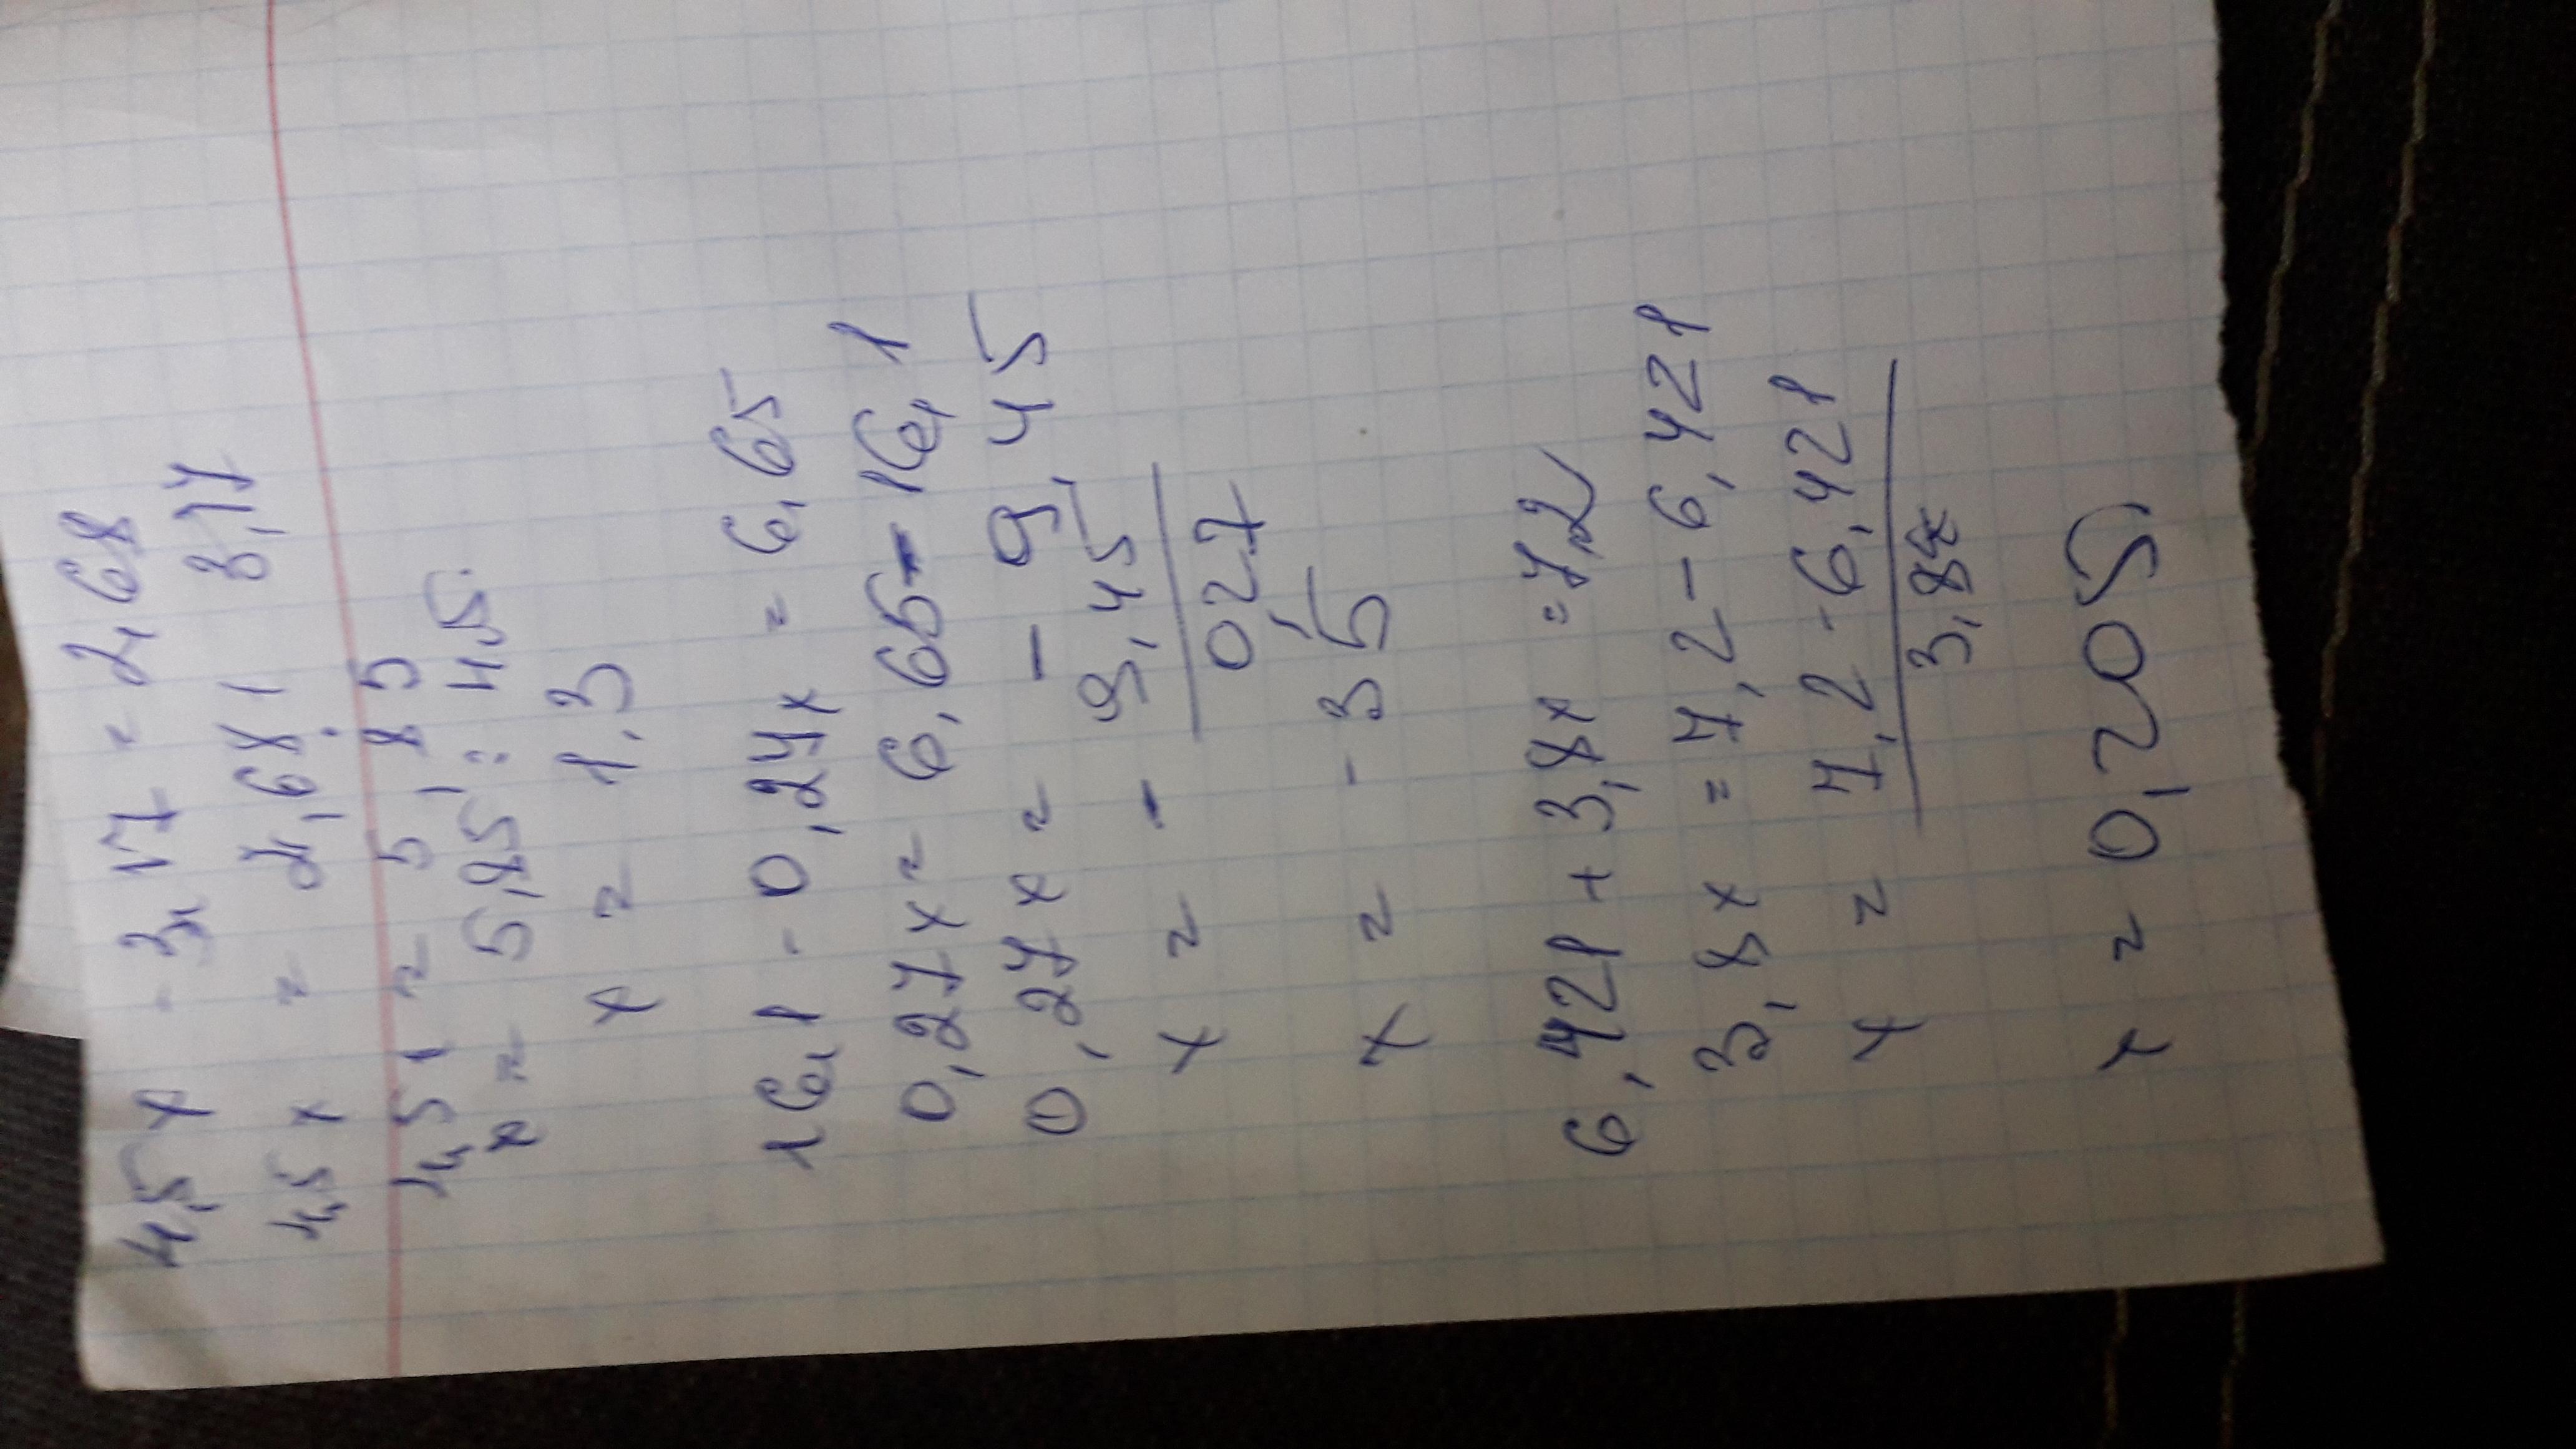 4,5x - 3,17 = 2,68
4,5x = 2,68 + 3,17
4,5x = 5,85
x = 5,85 : 4,5
x = 1,3
16,1 - 0,27x = 6,65
0,27x = 6,65 - 16,1
0,27x = - 9,45
x = - 9,45
0,27
x = - 35
6,421 + 3,8x = 7,2
3,8x = 7,2 - 6,421
x = 7,2 - 6,421
3,8x
x = 0,205